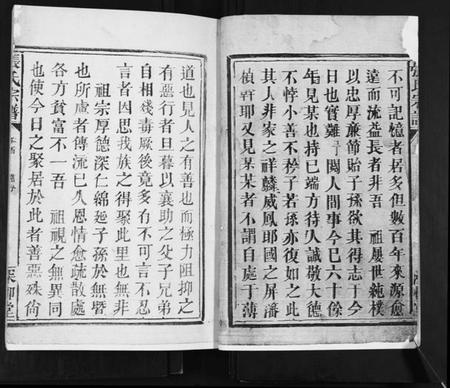 不可記憶者居多但數百年來源愈
遠而流益長者非吾 祖屢世純樸
以忠厚廉節貽子孫欲其得志于今
日也實難予閱人間事今已六十餘
年見某也持己端方待人誠敬大德
不悖小善不矜子若孫亦復如之此
其人非家之祥麟威鳳耶國之屏藩
楨幹耶又見某某者不謂自處于薄
張氏宗譜
道也見人之有善也而極力阻抑之
有惡行者旦暮以襄助之父子兄弟
自相殘毒厥後竟多有不可言不忍
言者因思我族之得聚此里也無非
祖宗厚德深仁綿延子孫於無暨
也所慮者傳流已久恩情愈疏散處
各方貧富不一吾 祖視之無異同
也使今日之聚居於此者善惡殊尚
張氏宗譜